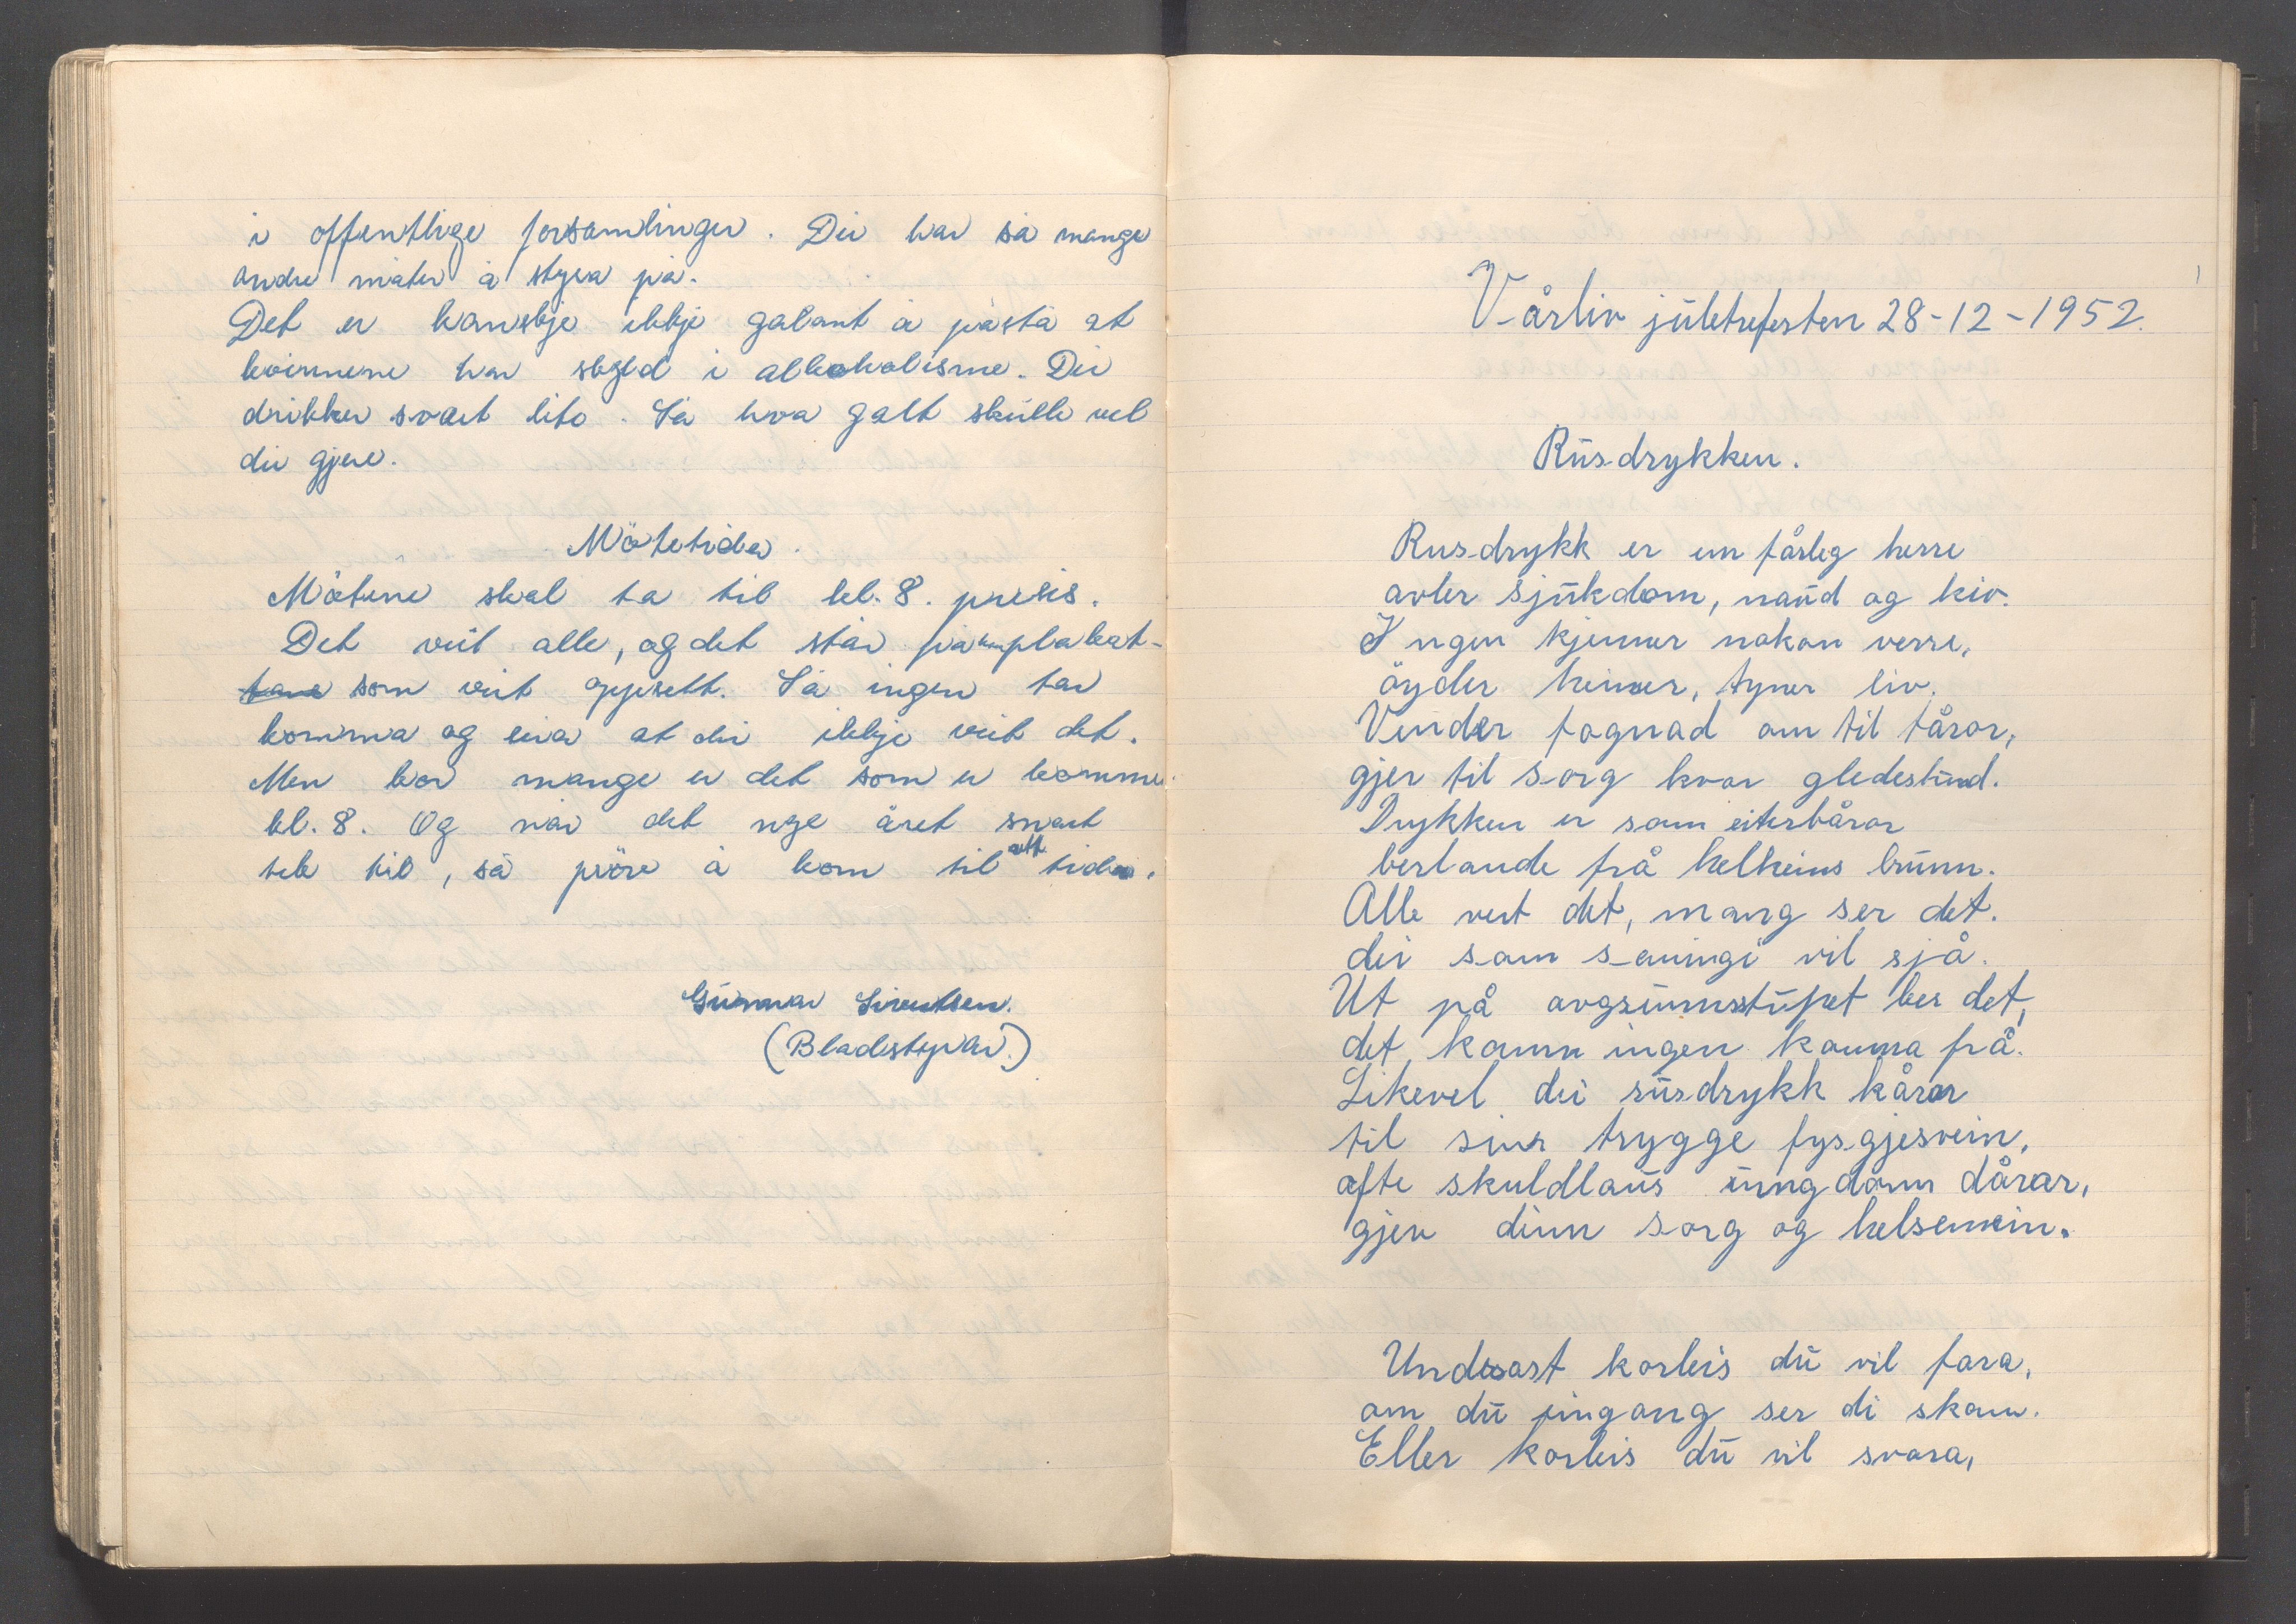 i offentlige forsamlinger. Dei har så mange
andre måter å styra på.
Det er kanskje ikkje galant å påstå at
kvinnene har skyld i alkoholisme. Dei
drikker svært lite. Så hva galt skulle vel
dei gjere.
Mötetider.
Mötene skal ta til kl. 8. presis.
Det veit alle, og det står på plakat-
som veit oppsett. Så ingen tar
komma og seia at dei ikkje veit det.
Men kor mange er det som er komme
kl. 8. Og når det nye året snart
tek til, så pröve å kom til rett tid.
Gunnar Sivertsen.
(Bladestyrar.)
Vårliv juletrefesten 28-12-1952.
Rusdrykken.
Rusdrykk er ein fårleg herre
avler sjukdom, naud og kiv.
Ingen kjenner nokon verre,
öyder heimer, tyner liv.
Vender fagnad om til tåror,
gjer til sorg kvar gledestund.
Drykken er som eiterbåror
veslande frå helheims brunn.
Alle veit det, mang ser det.
dei som sanningi vil sjå.
Ut på avgrunnsstupet ber det,
det kann ingen kouma frå.
Likevel dei rusdrykk kårar
til sin trygge fysgjesvein,
ofte skuldlaus ungdom dårar,
gjev dinn sorg og helsemein.
Undrast korleis du vil fara,
om du eingong ser di skam.
Eller korleis du vil svara,